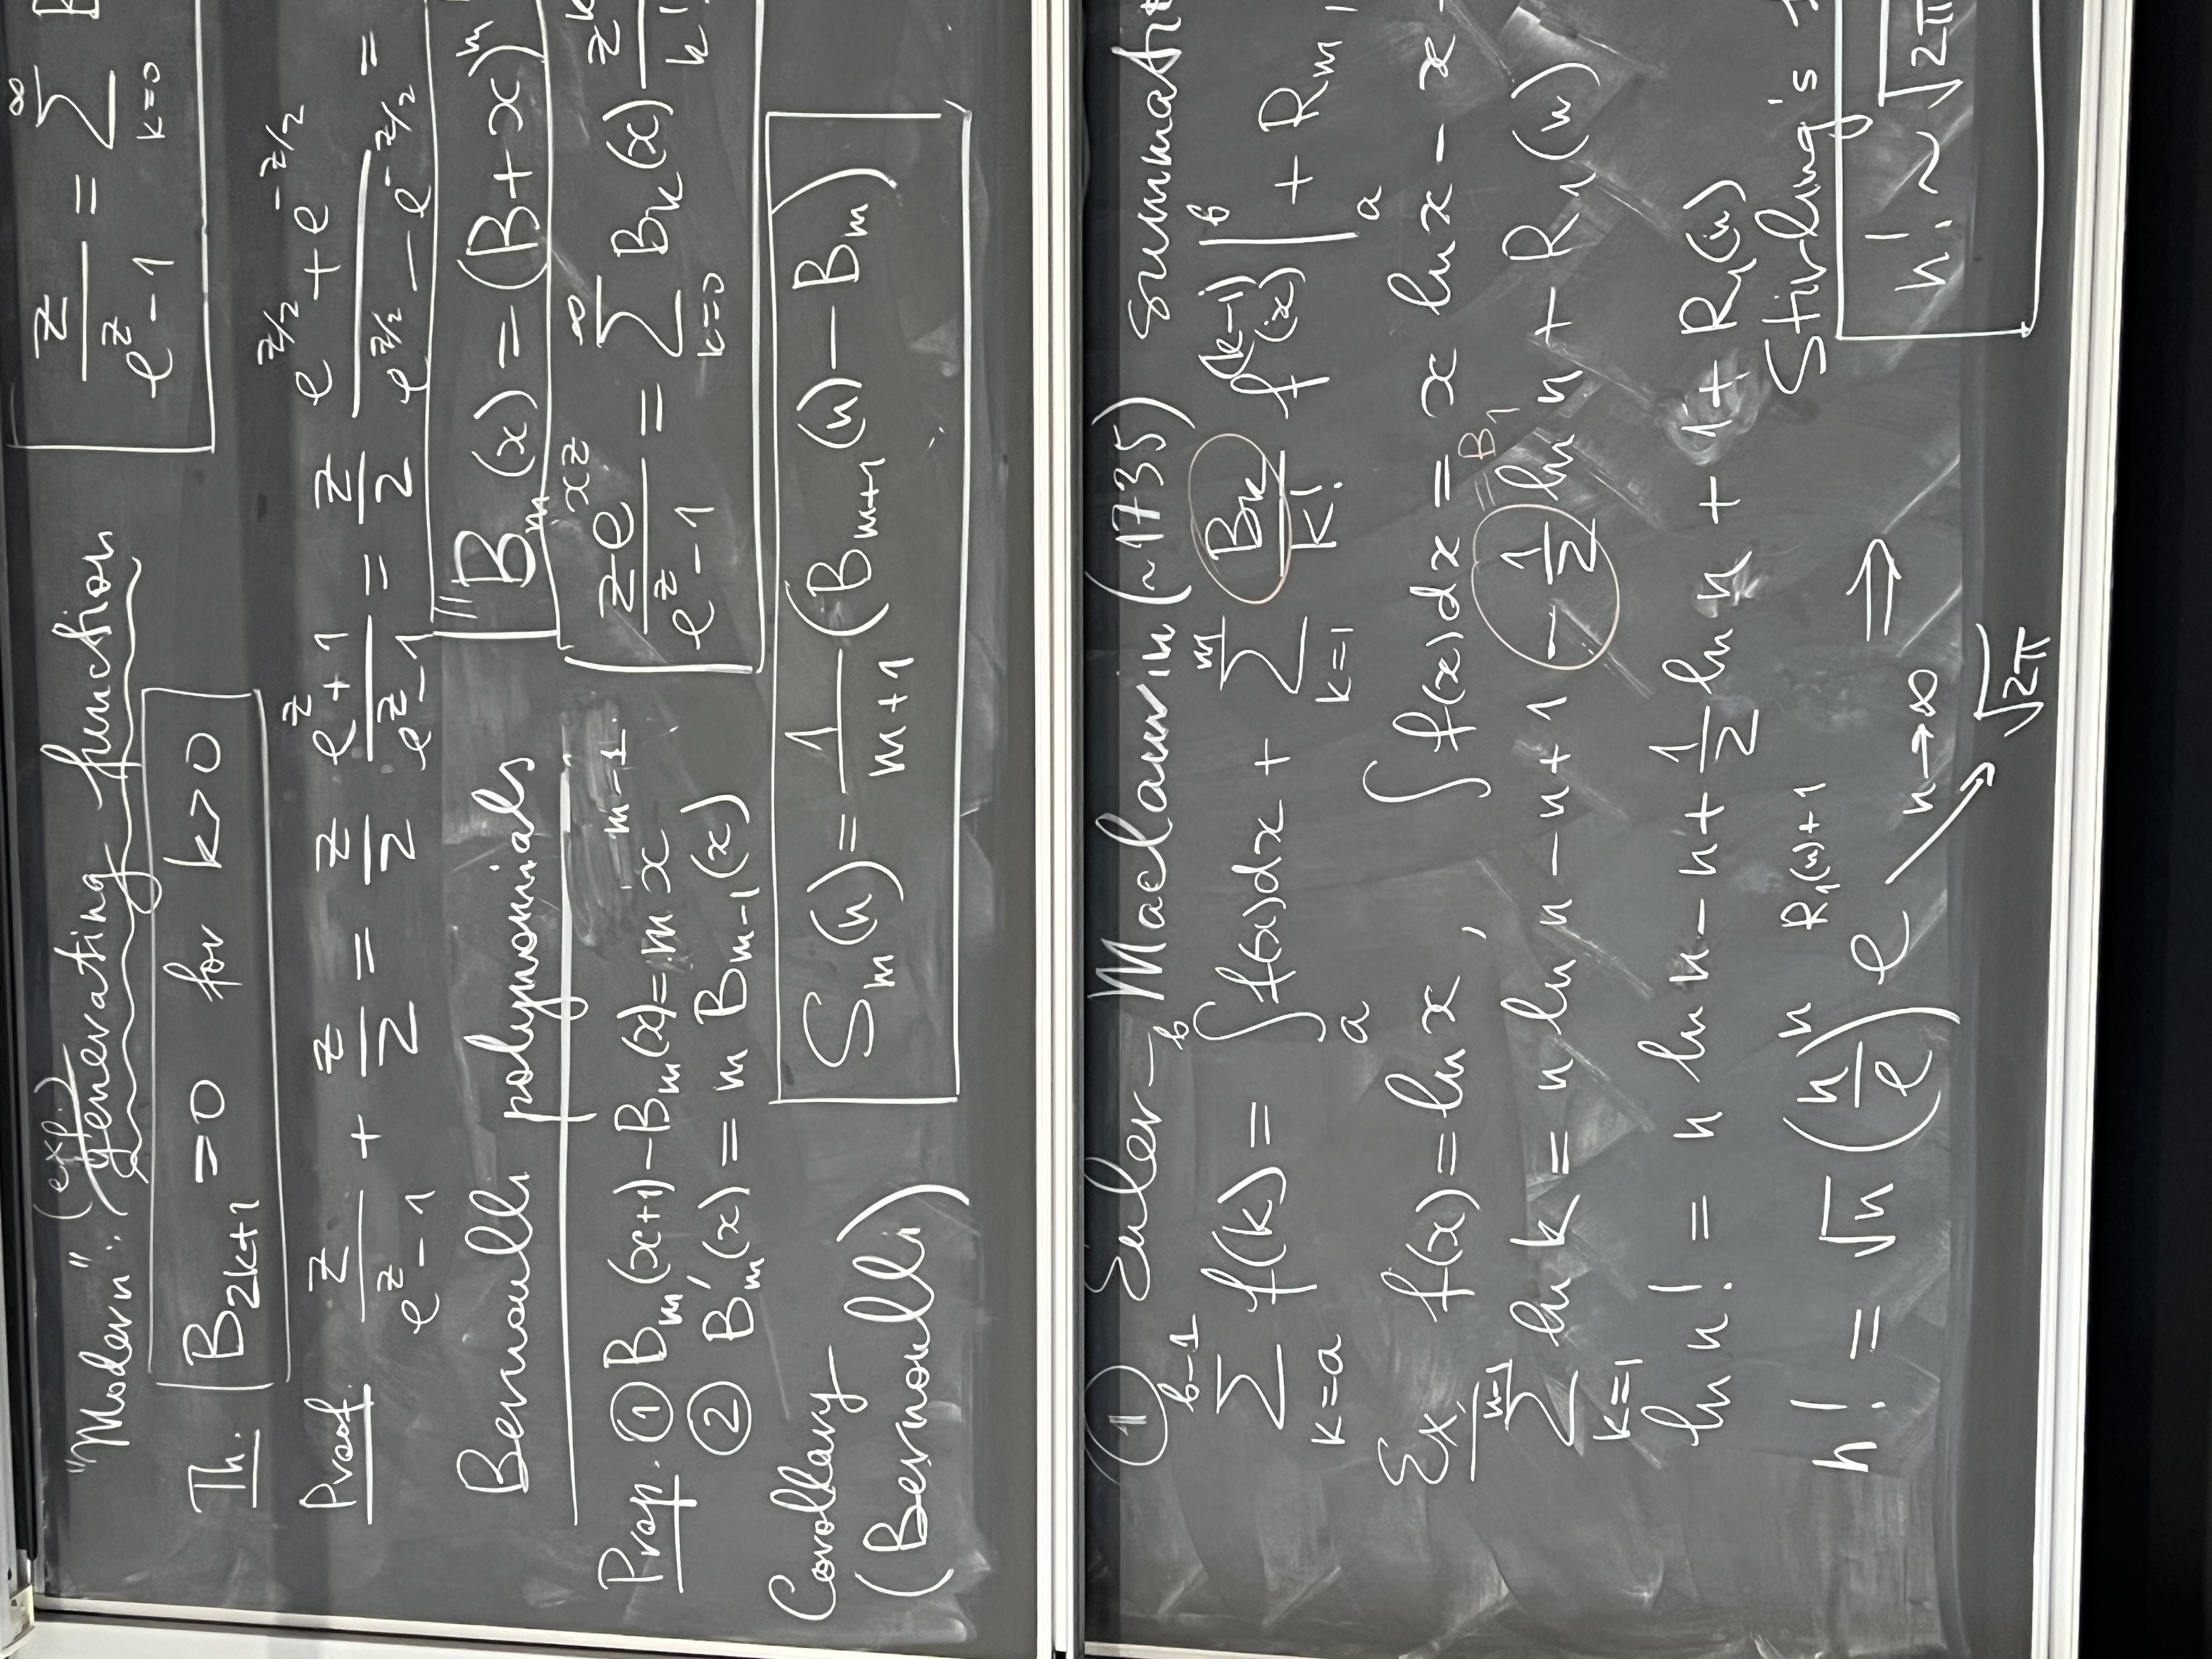 "Modern": (exp.) generating function
z/(e^z - 1) = ∑_{k=0}^{∞} B
Th. B_{2k+1} = 0 for k > 0
Proof. z/(e^z - 1) + z/2 = z/2 (e^z + 1)/(e^z - 1) = z/2 (e^{z/2} + e^{-z/2})/(e^{z/2} - e^{-z/2}) =
Bernoulli polynomials
"B_m(x) = (B + x)^m
Prop. ① B_m(x+1) - B_m(x) = m x^{m-1}.
ze^{xz}/(e^z - 1) = ∑_{k=0}^{∞} B_k(x) z^k/k!
② B'_m(x) = m B_{m-1}(x)
Corollary
(Bernoulli)
S_m(n) = 1/(m+1) (B_{m+1}(n) - B_m)
① Euler–Maclaurin (~1735) summati
∑_{k=a}^{b-1} f(k) = ∫_a^b f(x)dx + ∑_{k=1}^{m} B_k/k! f^{(k-1)}(x) |_a^b + R_m,
Ex. f(x) = ln x, ∫ f(x)dx = x ln x - x
= B_1
∑_{k=1}^{n-1} ln k = n ln n - n + 1 - 1/2 ln n + R_1(n)
ln n! = n ln n - n + 1/2 ln n + 1 + R_1(n)
Stirling's
n! = √n (n/e)^n e^{R_1(n)+1} ⟹
n! ~ √2π
n → ∞
√2π